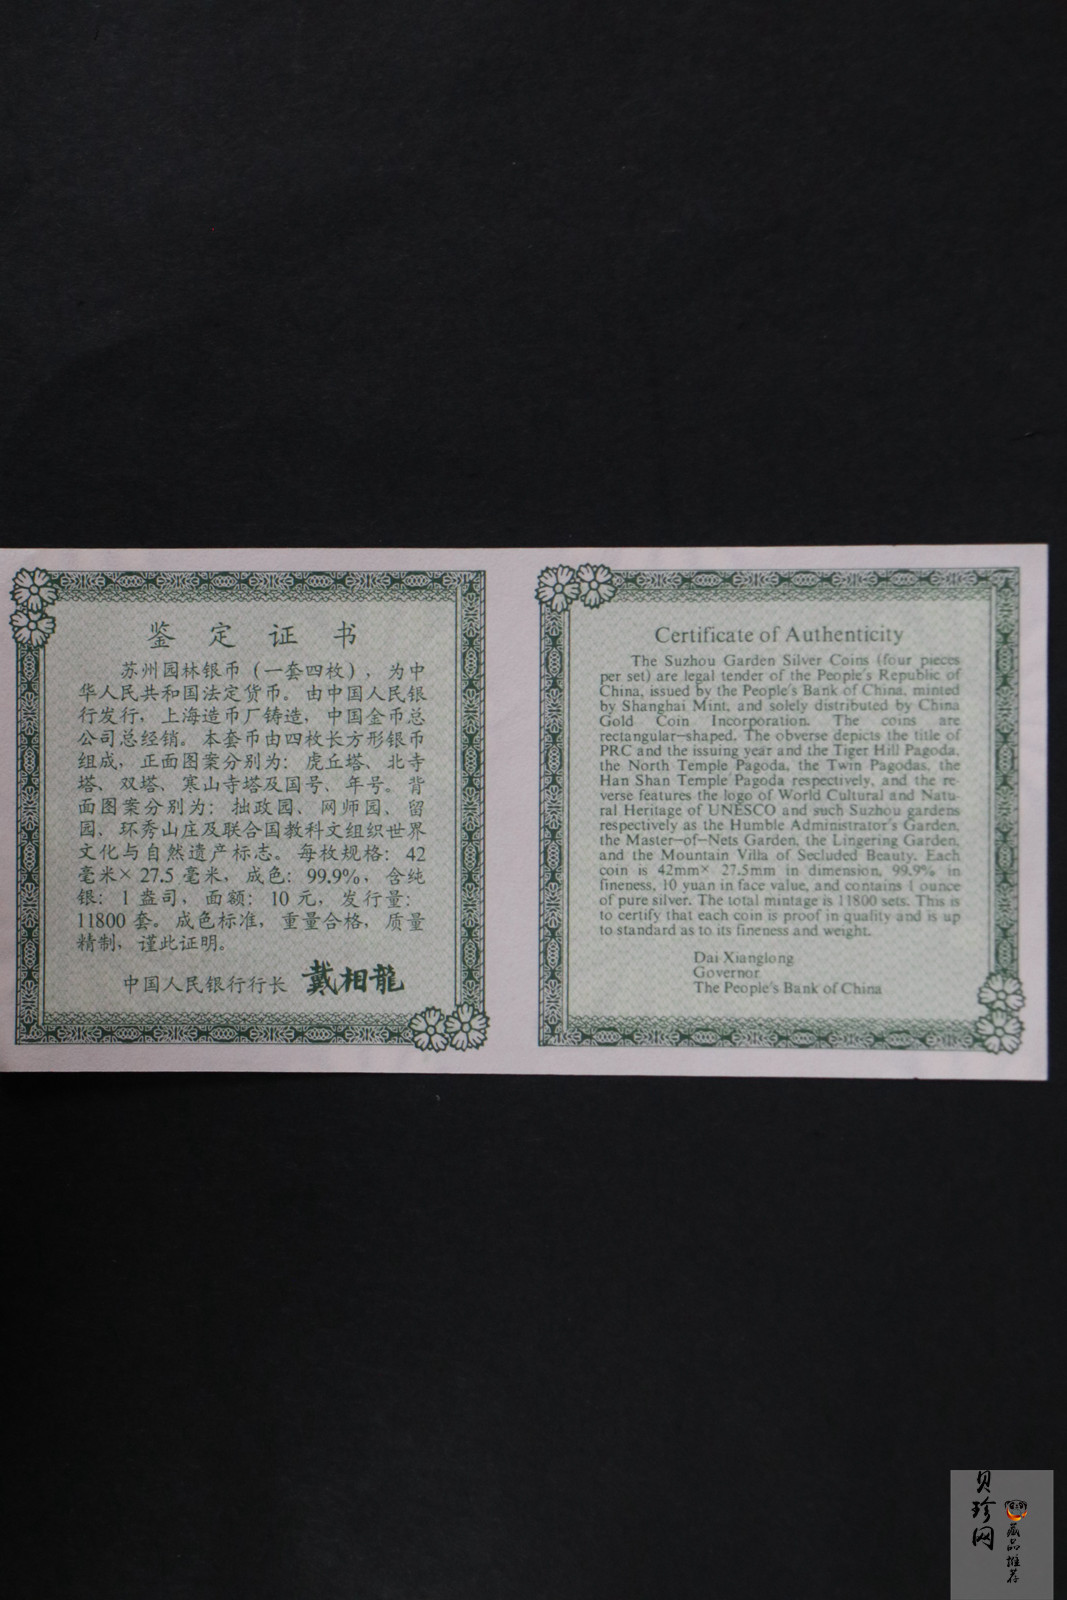 鉴定证书
苏州园林银币（一套四枚），为中
华人民共和国法定货币。由中国人民银
行发行，上海造币厂铸造，中国金币总
公司总经销。本套币由四枚长方形银币
组成，正面图案分别为：虎丘塔、北寺
塔、双塔、寒山寺塔及国号、年号。背
面图案分别为：拙政园、网师园、留
园、环秀山庄及联合国教科文组织世界
文化与自然遗产标志。每枚规格：42
毫米×27.5毫米，成色：99.9%，含纯
银：1盎司，面额：10元，发行量：
11800套。成色标准，重量合格，质量
精制，谨此证明。
中国人民银行行长 戴相龍
Certificate of Authenticity
The Suzhou Garden Silver Coins (four pieces
per set) are legal tender of the People's Republic of
China, issued by the People's Bank of China, minted
by Shanghai Mint, and solely distributed by China
Gold Coin Incorporation. The coins are
rectangular-shaped. The obverse depicts the title of
PRC and the issuing year and the Tiger Hill Pagoda,
the North Temple Pagoda, the Twin Pagodas, the
Han Shan Temple Pagoda respectively, and the re-
verse features the logo of World Cultural and Natu-
ral Heritage of UNESCO and such Suzhou gardens
respectively as the Humble Administrator's Garden,
the Master-of-Nets Garden, the Lingering Garden,
and the Mountain Villa of Secluded Beauty. Each
coin is 42mm× 27.5mm in dimension, 99.9% in
fineness, 10 yuan in face value, and contains 1 ounce
of pure silver. The total mintage is 11800 sets. This is
to certify that each coin is proof in quality and is up
to standard as to its fineness and weight.
Dai Xianglong
Governor
The People's Bank of China
贝珍网
藏品推荐